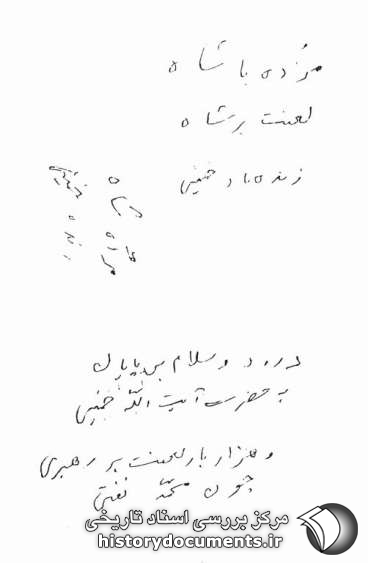 مرده با شاه
لعنت بر شاه
زنده باد خمینی
درود و سلام بی پایان
به حضرت آیت الله خمینی
و هزار بار لعنت بر رهبری
چون محمد نفتی
مرکز بررسی اسناد تاریخی
historydocuments.ir